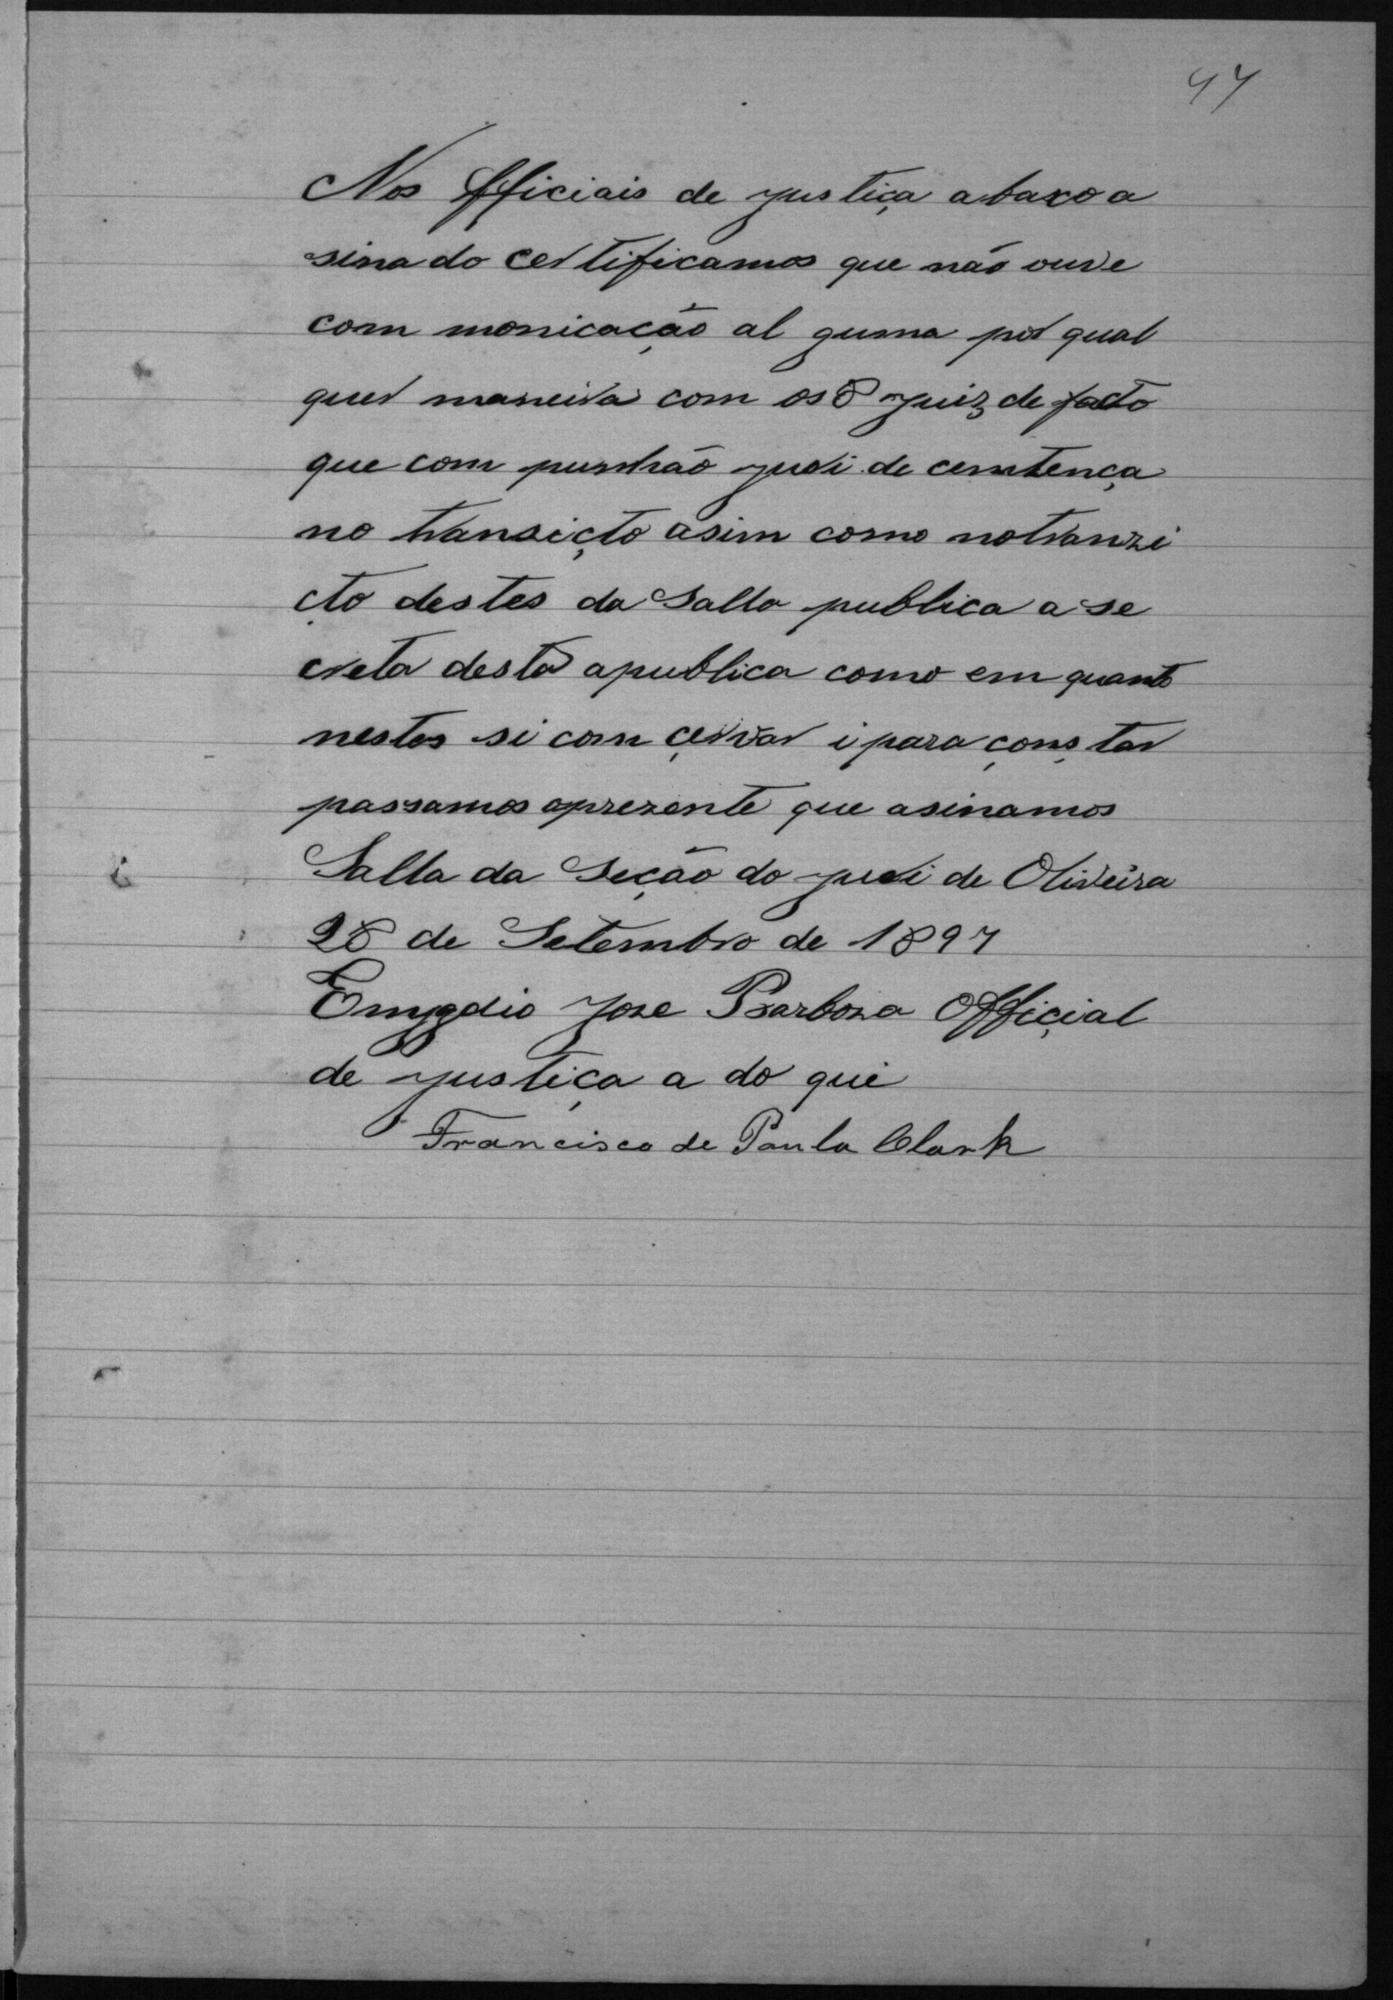 47
Nos Officiais de justiça abaxo a
sinado certificamos que não ouve
com monicação al guma por qual
quer maneira com os 8 juiz de facto
que com punhão juri de cemtença
no transicto asim como notranzi
cto destes da Salla publica a se
creta desta apublica como em quanto
nestes si com çervar i para çonstar
passamos aprezente que asinamos
Salla da Seção do juri de Oliveira
28 de Setembro de 1897
Emygdio Joze Barboza Official
de justiça a do que
Francisco de Paula Clark